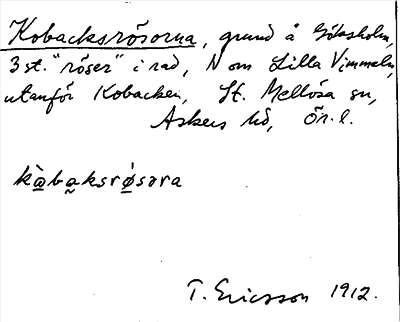 Kobacksrösorna, grund å Göksholm,
3 st. "röser" i rad, N om Lilla Vimmeln,
utanför Kobacken, St. Mellösa sn,
Askers hd, Ör. l.
kɷ̀baksrø̀sɷrna
T. Ericsson 1912.